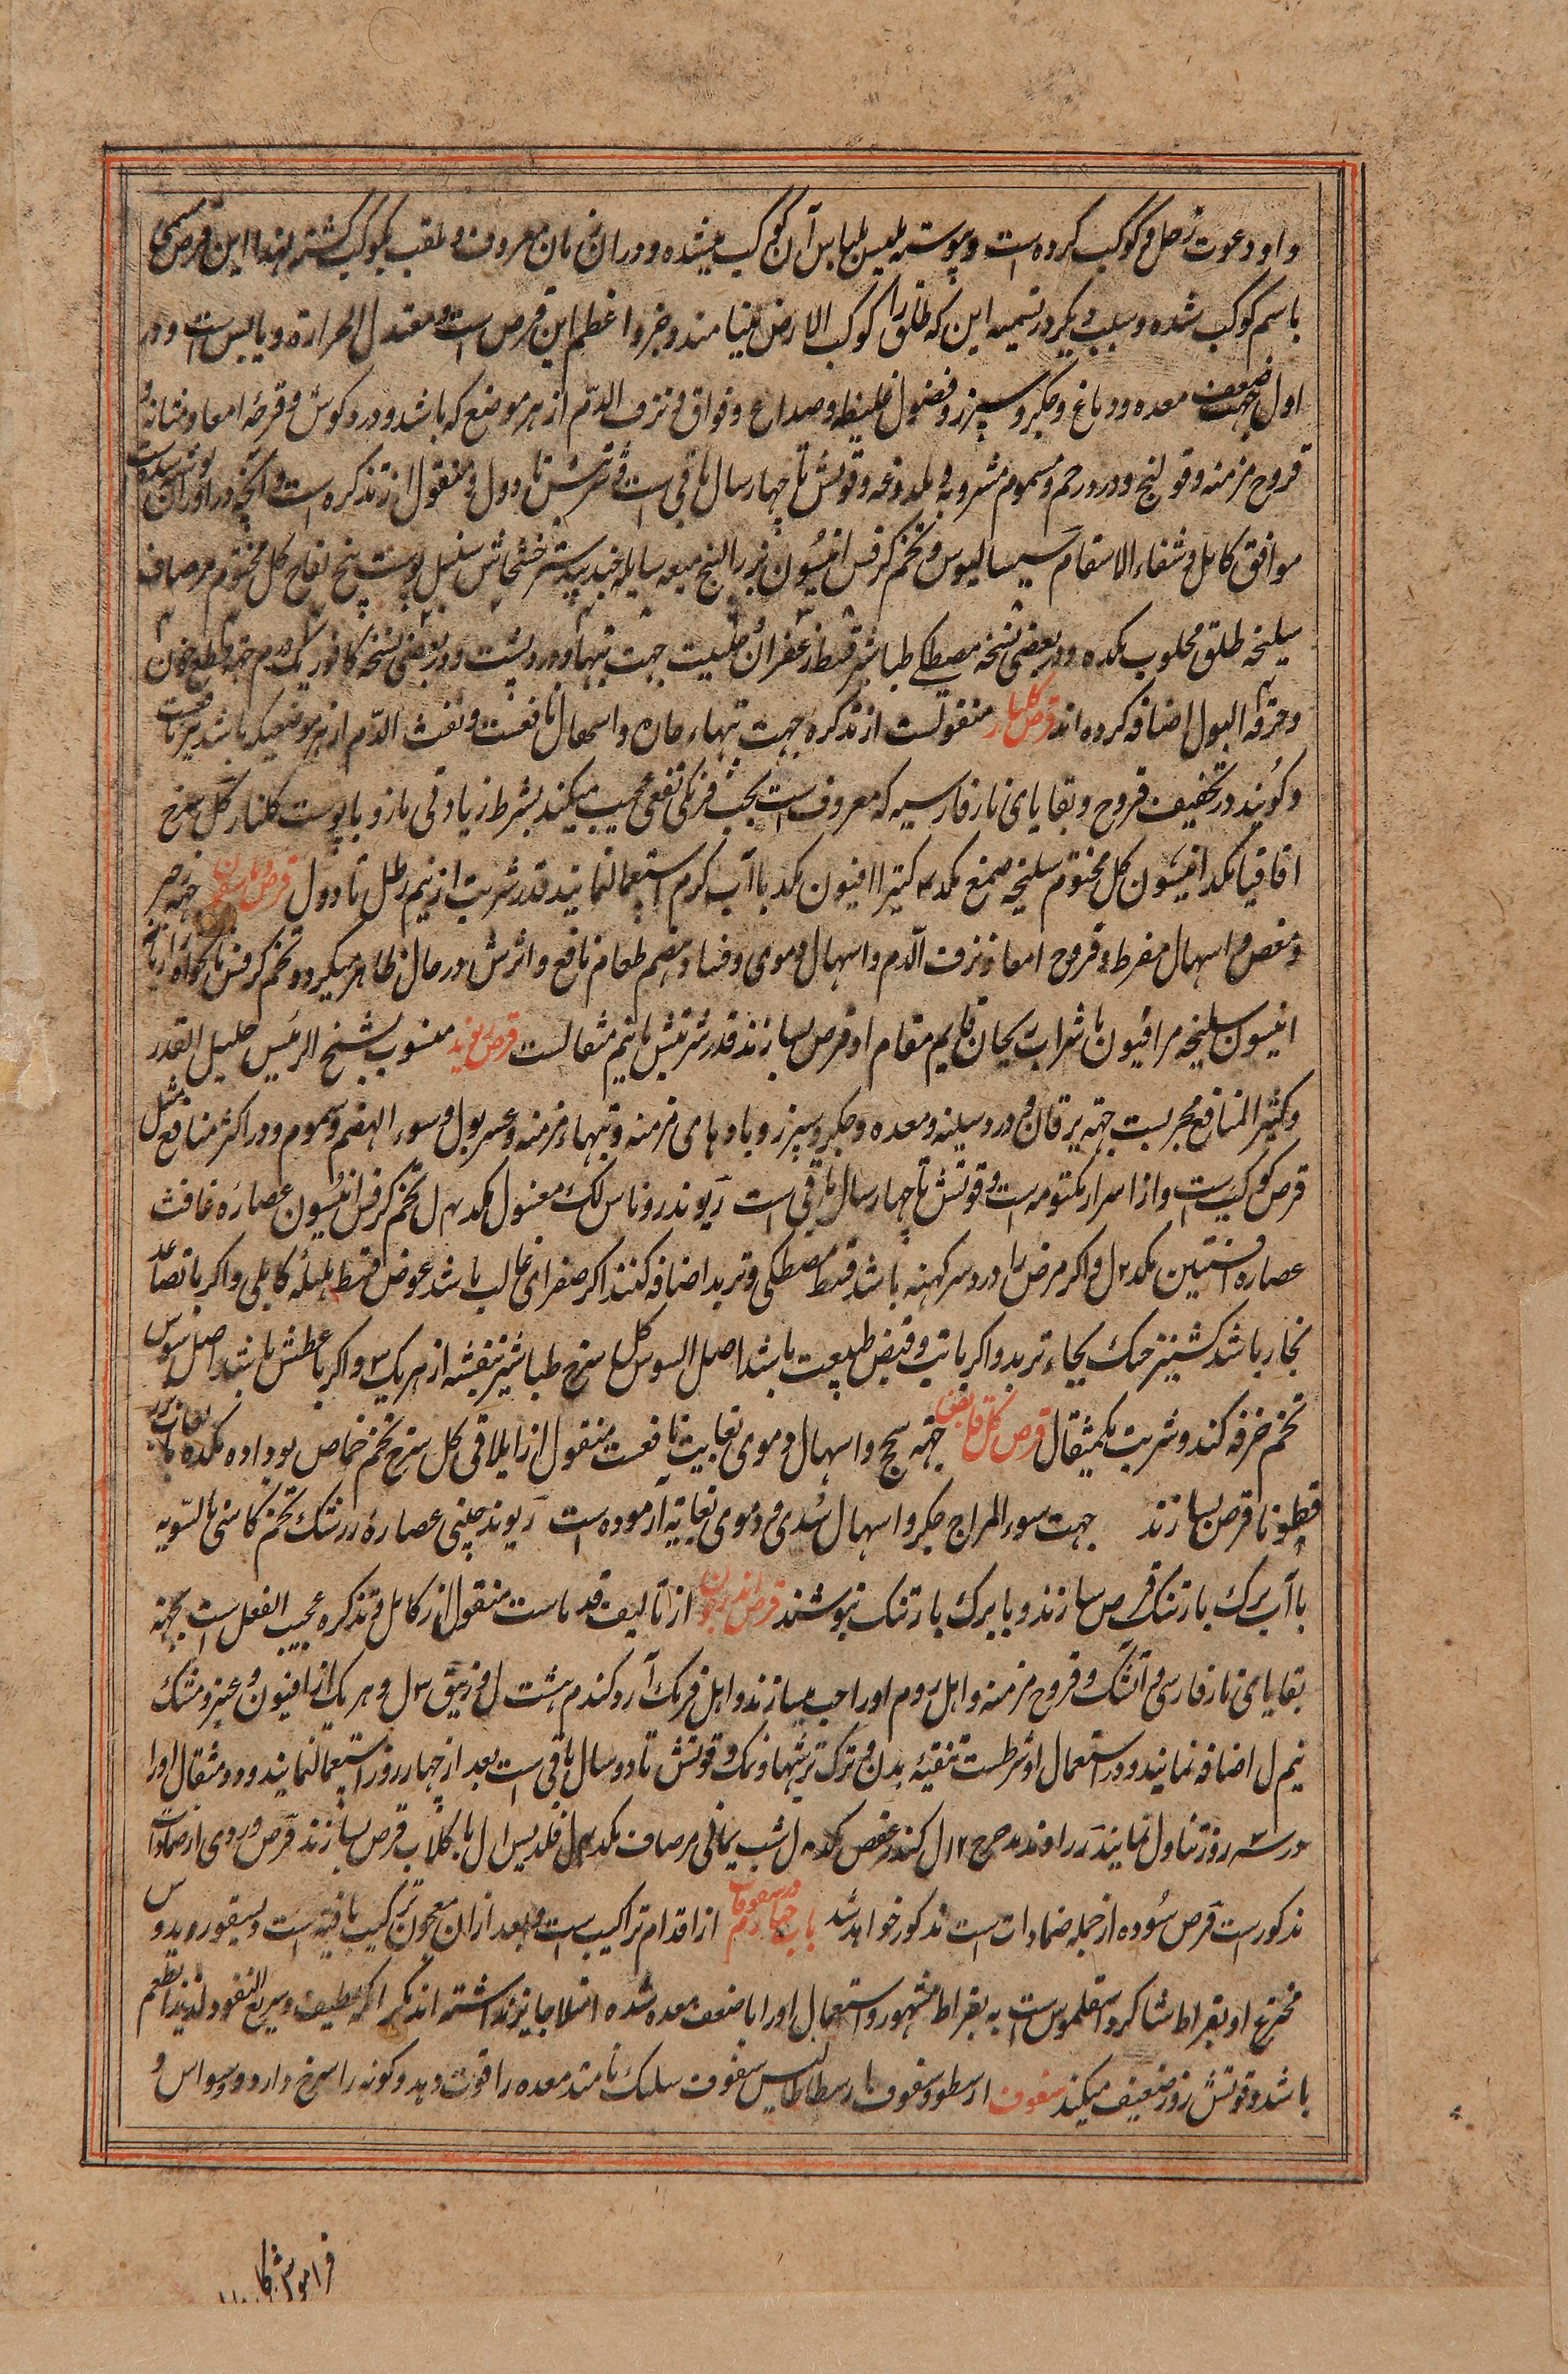 و او دعوت زحل و کوکب کرده است و پیوسته بلباس آن کوکب میشده و در ان زمان معروف و ملقب بکوکب کشته لهذا این قرص مسمی
باسم کوکب شده و سبب دیکر در تسمیه این که طلق را کوکب الارض مینامند و جزو اعظم این قرص است و معتدل الحرارة و یابس است و در
اول جهت ضعف معده و دماغ و جکر و سپرز و فضول غلیظه و صداع و فواق و نزف الدّم از هر موضع که باشد و درد کوش و قرحهٔ امعا و مثانه و
قروح مزمنه و قولنج و درد رحم و سموم مشروبه و ملدوغه و قوتش تا چهار سال باقی است و شربتش تا دو ل و منقول از تذکره است و آنچه در
موافق کامل و شفاء الاسقام سیسالیوس و تخم کرفس انیسون بزر البنج میعه سایله جندبیدستر خشخاش سنبل پوست بیخ تفاح کل مختوم مر صاف
سلیخه طلق محلوب مکد ه و در بعضی نسخه مصطکی طباشیر قسط زعفران جهت تبها و درد پشت و در بعضی نسخه کافور یکدرم جهة قطع خون
و حرقة البول اضافه کرده اند قرص کلنار منقولست از تذکره جهت تبهاء حاره و اسهال نافعست و نفث الدّم از هر موضعیکه باشد
و کویند در تجفیف قروح و بقایای نار فارسیه که معروف است بحب فرنکی نفعی عجیب میکند بشرط زیادتی مازو با پوست کلنار کل سرخ
اقاقیا مکد انیسون کل مختوم سلیخه صمغ مکد ۲ کتیرا افیون مکد با آب کرم استعمالنمایند قدر شربت از نیم رطل تا دو ل قرص جهة زحیر
و مغص و اسهال مفرط و قروح امعا و نزف الدّم و اسهال دموی و فساد هضم طعام نافع و اثرش در حال ظاهر میکردد تخم کرفس نانخواه
انیسون سلیخه مر افیون با شراب ریحان قایم مقام او قرص بسازند قدر شربتش تا نیم مثقالست قرص ریوند منسوب بشیخ الرئیس جلیل القدر
و کثیر المنافع مجربست جهة یرقان و درد سینه و معده و جکر و سپرز و بادهای مزمنه و تبهاء مزمنه و عسر بول و سوء الهضم و سموم و در اکثر منافع مثل
قرص کوکبست و از اسرار مکتومه است و قوتش تا چهار سال باقی است ریوند روناس لک مغسول مکد ۳ ل تخم کرفس انیسون عصاره غافث
عصاره افسنتین مکد ۲ ل و اکر مرض را درد سر کهنه باشد قسط مصطکی و تربد اضافه کنند اکر صفرای غالب باشد عوض قسط هلیلهٔ کابلی و اکر با تصاعد
بخار باشد کشنیز خشک بجاء تربد و اکر با تب و قبض طبیعت باشد اصل السوس کل سرخ طباشیر بنفشه از هر یک ۳ و اکر با عطش باشد اصل سوس
تخم خرفه کنند و شربت یکمثقال قرص کل قابض جهة سحج و اسهال دموی بغایت نافعست منقول از ایلاقی کل سرخ تخم حماض بو داده مکد ه با لعاب بزر
قطونا قرص بسازند جهت سوء المزاج جکر و اسهال سدی و دموی بغایة آزموده است ریوند چینی عصارهٔ زرشک تخم کاسنی بالسّویه
با آب برک بارتنک قرص سازند و با برک بارتنک بنوشند قرص اندرون از تالیف قدماست منقول از کامل و تذکره عجیب الفعل است بجهة
بقایای نار فارسی و آتشک و قروح مزمنه و اهل روم اورا حب میسازند و اهل فرنک آرد کندم هشت ل و زیبق ۳ ل و هر یک از افیون و عنبر و مشک
نیم ل اضافه نمایند و در استعمال او شرطست تنقیهٔ بدن و ترک ترشیها و نمک و قوتش تا دو سال باقی است بعد از چهار روز استعمالنمایند و دو مثقال اورا
در سه روز تناول نمایند زراوند مدحرج ۱۲ ل کندر عفص مکد ۸ ل شب یمانی مر صاف مکد ۴ ل قلدیس ا ل با کلاب قرص بسازند قرص وردی از ضمادات
مذکور است قرص سُوده از جمله ضمادات است مذکور خواهد شد باب چهارم در سفوفات از اقدام تراکیب است و بعد از ان معجون ترکیب یافته است و دیسقوریدوس
مخترع او بقراط شاکرد اسقلموس است به بقراط مشهور و استعمال اورا با ضعف معده شده امتلا جایز نداشته اند مکر آنکه لطیف و سریع النفوذ و لذیذ الطعم
باشد و قوتش زود ضعیف میکند سفوف ارسطو و سفوف ارسطاطالیس سفوف سلمک نامند معده را قوت دهد و کونه را سرخ دارد و وسواس و
فراموشکا